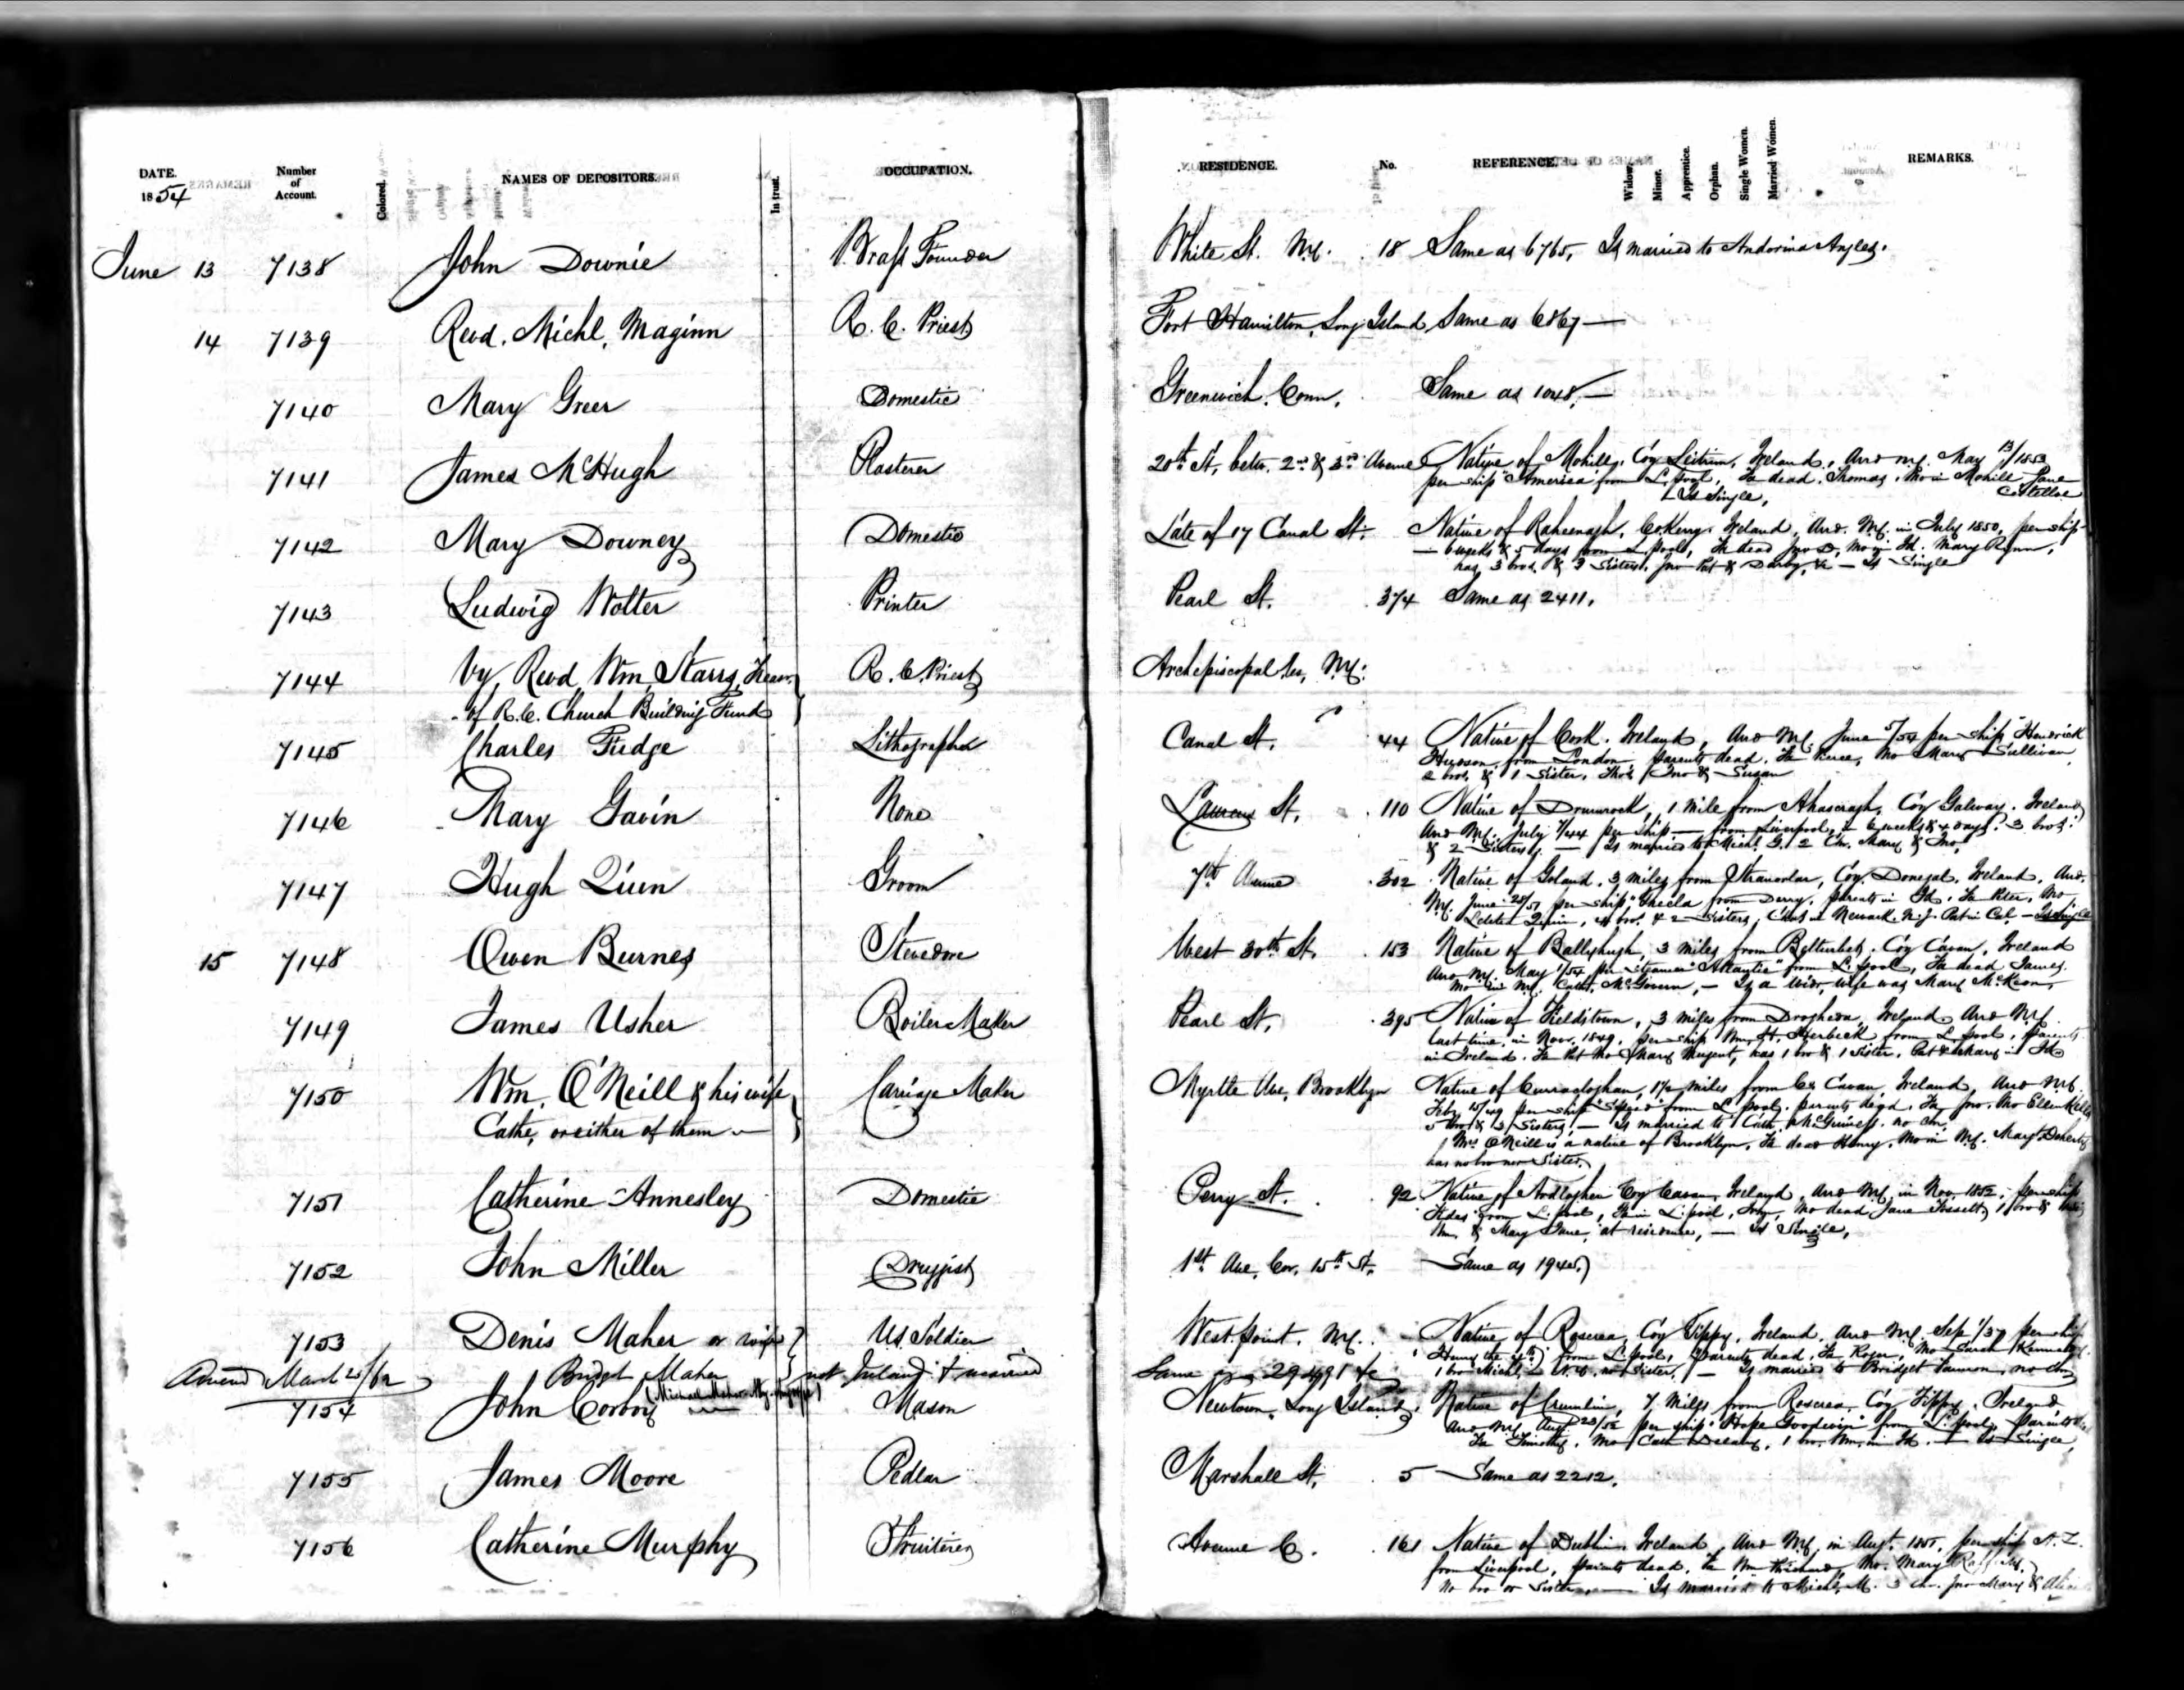 DATE. 1854 Number of Account. Colored. NAMES OF DEPOSITORS. In trust. OCCUPATION. RESIDENCE. No. REFERENCE. Widow. Minor. Apprentice. Orphan. Single Women. Married Women. REMARKS.
June 13 7138 John Downie Brass Founder White St. N.Y. 18 Same as 6765, Is married to Andorina Angles.
14 7139 Revd. Michl. Maginn R. C. Priest Fort Hamilton, Long Island Same as 6867 —
7140 Mary Greer Domestic Greenwich, Conn. Same as 1048. —
7141 James McHugh Plasterer 20th St, betw. 2nd & 3rd Avenue Native of Mohill, Coy Leitrim, Ireland, Arrd N.Y. May 13/1853
per ship "America" from L.pool, Fa dead, Thomas, Mo in Mohill Jane
Costelloe
Is Single,
7142 Mary Downey Domestic Late of 17 Canal St. Native of Raheenagh, Co Kerry, Ireland, Arrd. N.Y. in July 1850, per ship
— 6 weeks & 5 days from L.pool, Fa dead Jno D, Mo in Id. Mary Rynn,
has 3 bros. & 3 Sisters, Jno Pat & Darby, &c — Is Single
7143 Ludwig Wolter Printer Pearl St. 374 Same as 2411.
7144 by Revd Wm Starrs, Treasr. R. C. Priest Archepiscopal Res, N.Y.
of R.C. Church Building Fund
7145 Charles Fudge Lithographer Canal St. 44 Native of Cork, Ireland, Arrd N.Y. June 5/54 per ship "Hendrick
Hudson, from London, parents dead, Fa Pierce, Mo Mary Sullivan,
2 bros. & 1 Sister, Thos Jno & Susan
7146 Mary Gavin None Laurens St. 110 Native of Drumrock, 1 mile from Ahascragh, Coy Galway, Ireland
Arrd N.Y. July 1/44 per Ship — from Liverpool, in 6 weeks & 4 days, 3 bros.
& 2 Sisters. — Is married to Michl. G. 2 Chn. Mary & Jno.
7147 Hugh Quin Groom 7th Avenue 302 Native of Goland, 3 miles from Stranorlar, Coy. Donegal, Ireland, Arrd.
N.Y. June 28/51 per ship "Thecla" from Derry, parents in Id, Fa Peter, Mo
Quin, 4 bros. & 2 Sisters, in Newark N.J. Pat in Cal — Is Single
15 7148 Owen Burnes Stevedore West 30th St. 153 Native of Ballyhugh, 3 miles from Belturbet, Coy Cavan, Ireland
Arrd N.Y. May 1/54 per Steamer "Atlantic" from L.pool, Fa dead James.
Mo in N.Y. Cath. McGovern, — Is a widr, wife was Mary McKeon,
7149 James Usher Boiler Maker Pearl St. 395 Native of Fieldstown, 3 miles from Drogheda, Ireland Arrd N.Y.
last time, in Nov. 1849, per ship Wm. H. Harbeck from L.pool, parents
in Ireland. Fa Pat Mo Mary Nugent, has 1 bro & 1 Sister, Pat & Mary in Id
7150 Wm. O'Neill & his wife Carriage Maker Myrtle Ave, Brooklyn Native of Curracloghan, 1½ miles from Co Cavan, Ireland, Arrd N.Y.
Cathe, or either of them — Feby 15/49 per ship "Speed" from L.pool, parents dead, Fa Jno, Mo Ellen Kelly
5 bros & 3 Sisters, — Is married to Cath. McGuiness, no chn,
Mrs. O'Neill is a native of Brooklyn, Fa dead Henry, Mo in N.Y. Mary Doherty
has no bro nor Sister.
7151 Catherine Annesley Domestic Perry St. 92 Native of Ardlogher Coy Cavan, Ireland, Arrd N.Y. in Nov. 1852, per ship
from L.pool, Fa in L.pool, Mo dead Jane Fossett, 1 bro &
Wm. & Mary Jane, at residence, — Is Single,
7152 John Miller Druggist 1st Ave, Cor. 15th St. Same as 1940.
7153 Denis Maher or wife U.S. Soldier West Point, N.Y. Native of Roscrea, Coy Tippy, Ireland, Arrd N.Y. Sep 1/37 per ship
Bridget Maher not Ireland & married Henry the 4th from L.pool, parents dead, Fa Roger, Mo Sarah Kennedy,
Amend March 20/62 Same as 29491 &c 1 bro Michl. in U.S. no Sister, — Is married to Bridget Lannon, no chn
7154 John Corboy Mason Newtown, Long Island, Native of Crumlin, 7 Miles from Roscrea, Coy Tippy, Ireland
Arrd N.Y. Augt 28/52 per ship "Hope Goodwin" from L.pool, parents
Fa Timothy, Mo Cath Delany, 1 bro. Wm. in Id. — Is Single,
7155 James Moore Pedlar Marshall St. 5 Same as 2212.
7156 Catherine Murphy Fruiterer Avenue C. 161 Native of Dublin, Ireland, Arrd N.Y. in Augt. 1851, per ship N.Z.
from Liverpool, parents dead, Fa Wm Prichard, Mo. Mary
no bro or Sister. — Is married to Michl. M. 3 chn. Jno Mary &